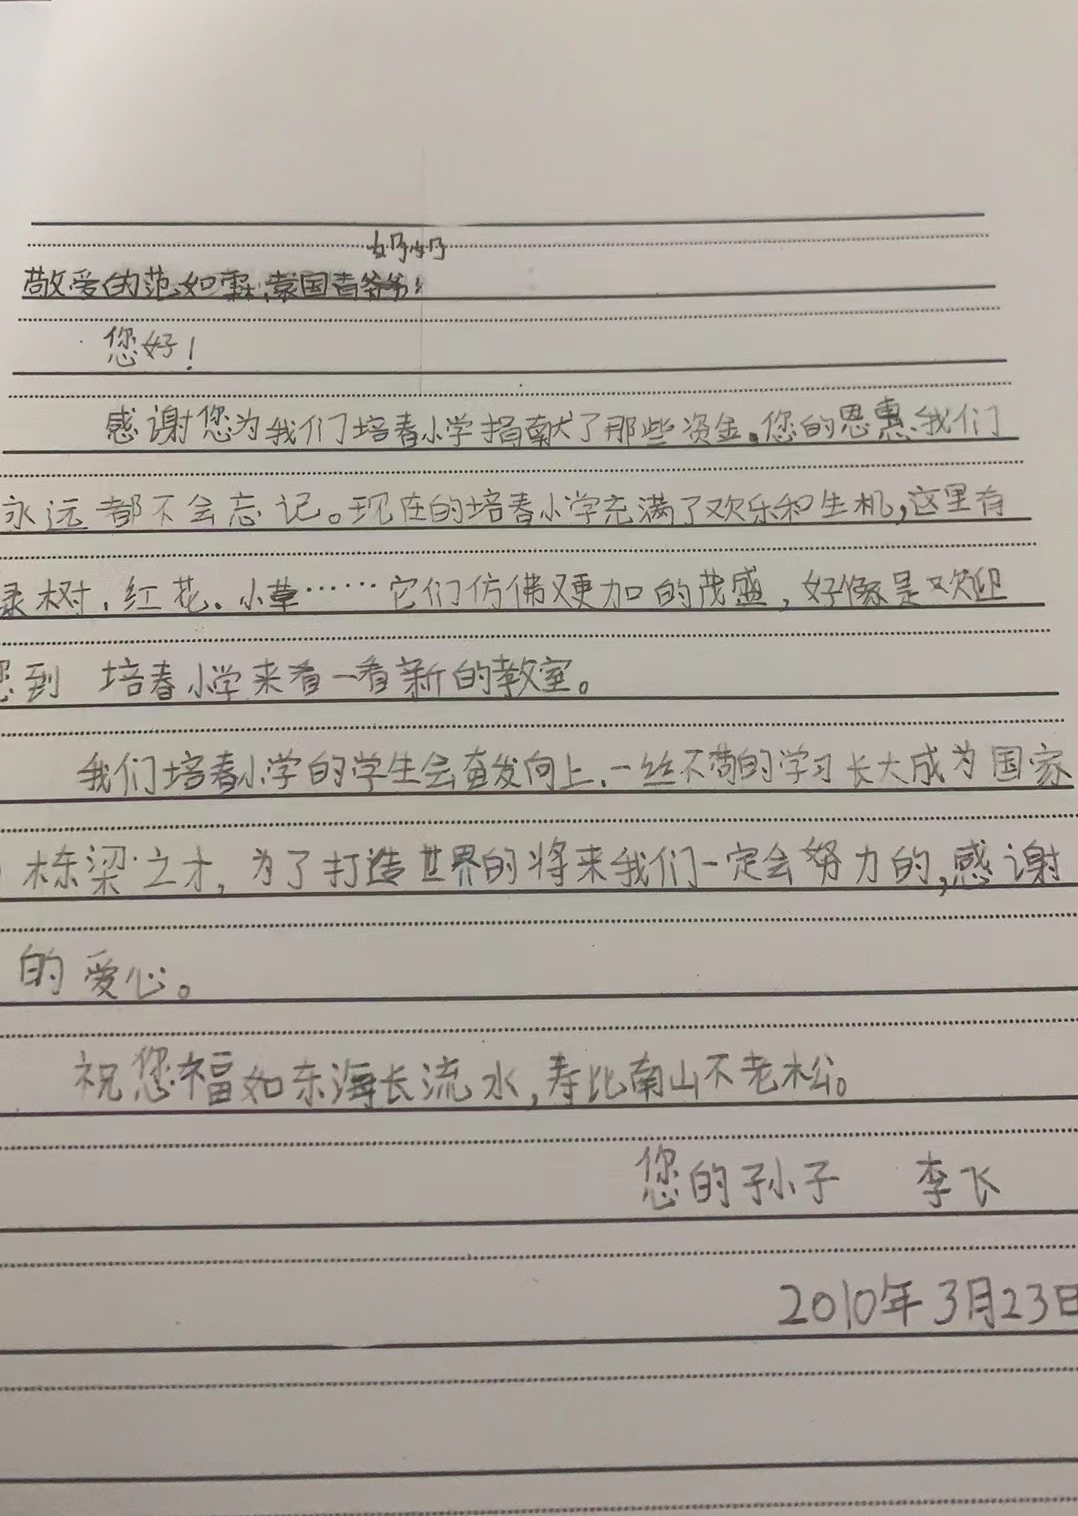 奶奶
敬爱的范如霖、袁国青爷爷：
您好！
感谢您为我们培春小学捐献了那些资金。您的恩惠我们
永远都不会忘记。现在的培春小学充满了欢乐和生机，这里有
绿树、红花、小草……它们仿佛又更加的茂盛，好像是欢迎
您到 培春小学来看一看新的教室。
我们培春小学的学生会奋发向上、一丝不苟的学习长大成为国家
栋梁之才，为了打造世界的将来我们一定会努力的，感谢
的爱心。
祝您福如东海长流水，寿比南山不老松。
您的孙子 李飞
2010年3月23日